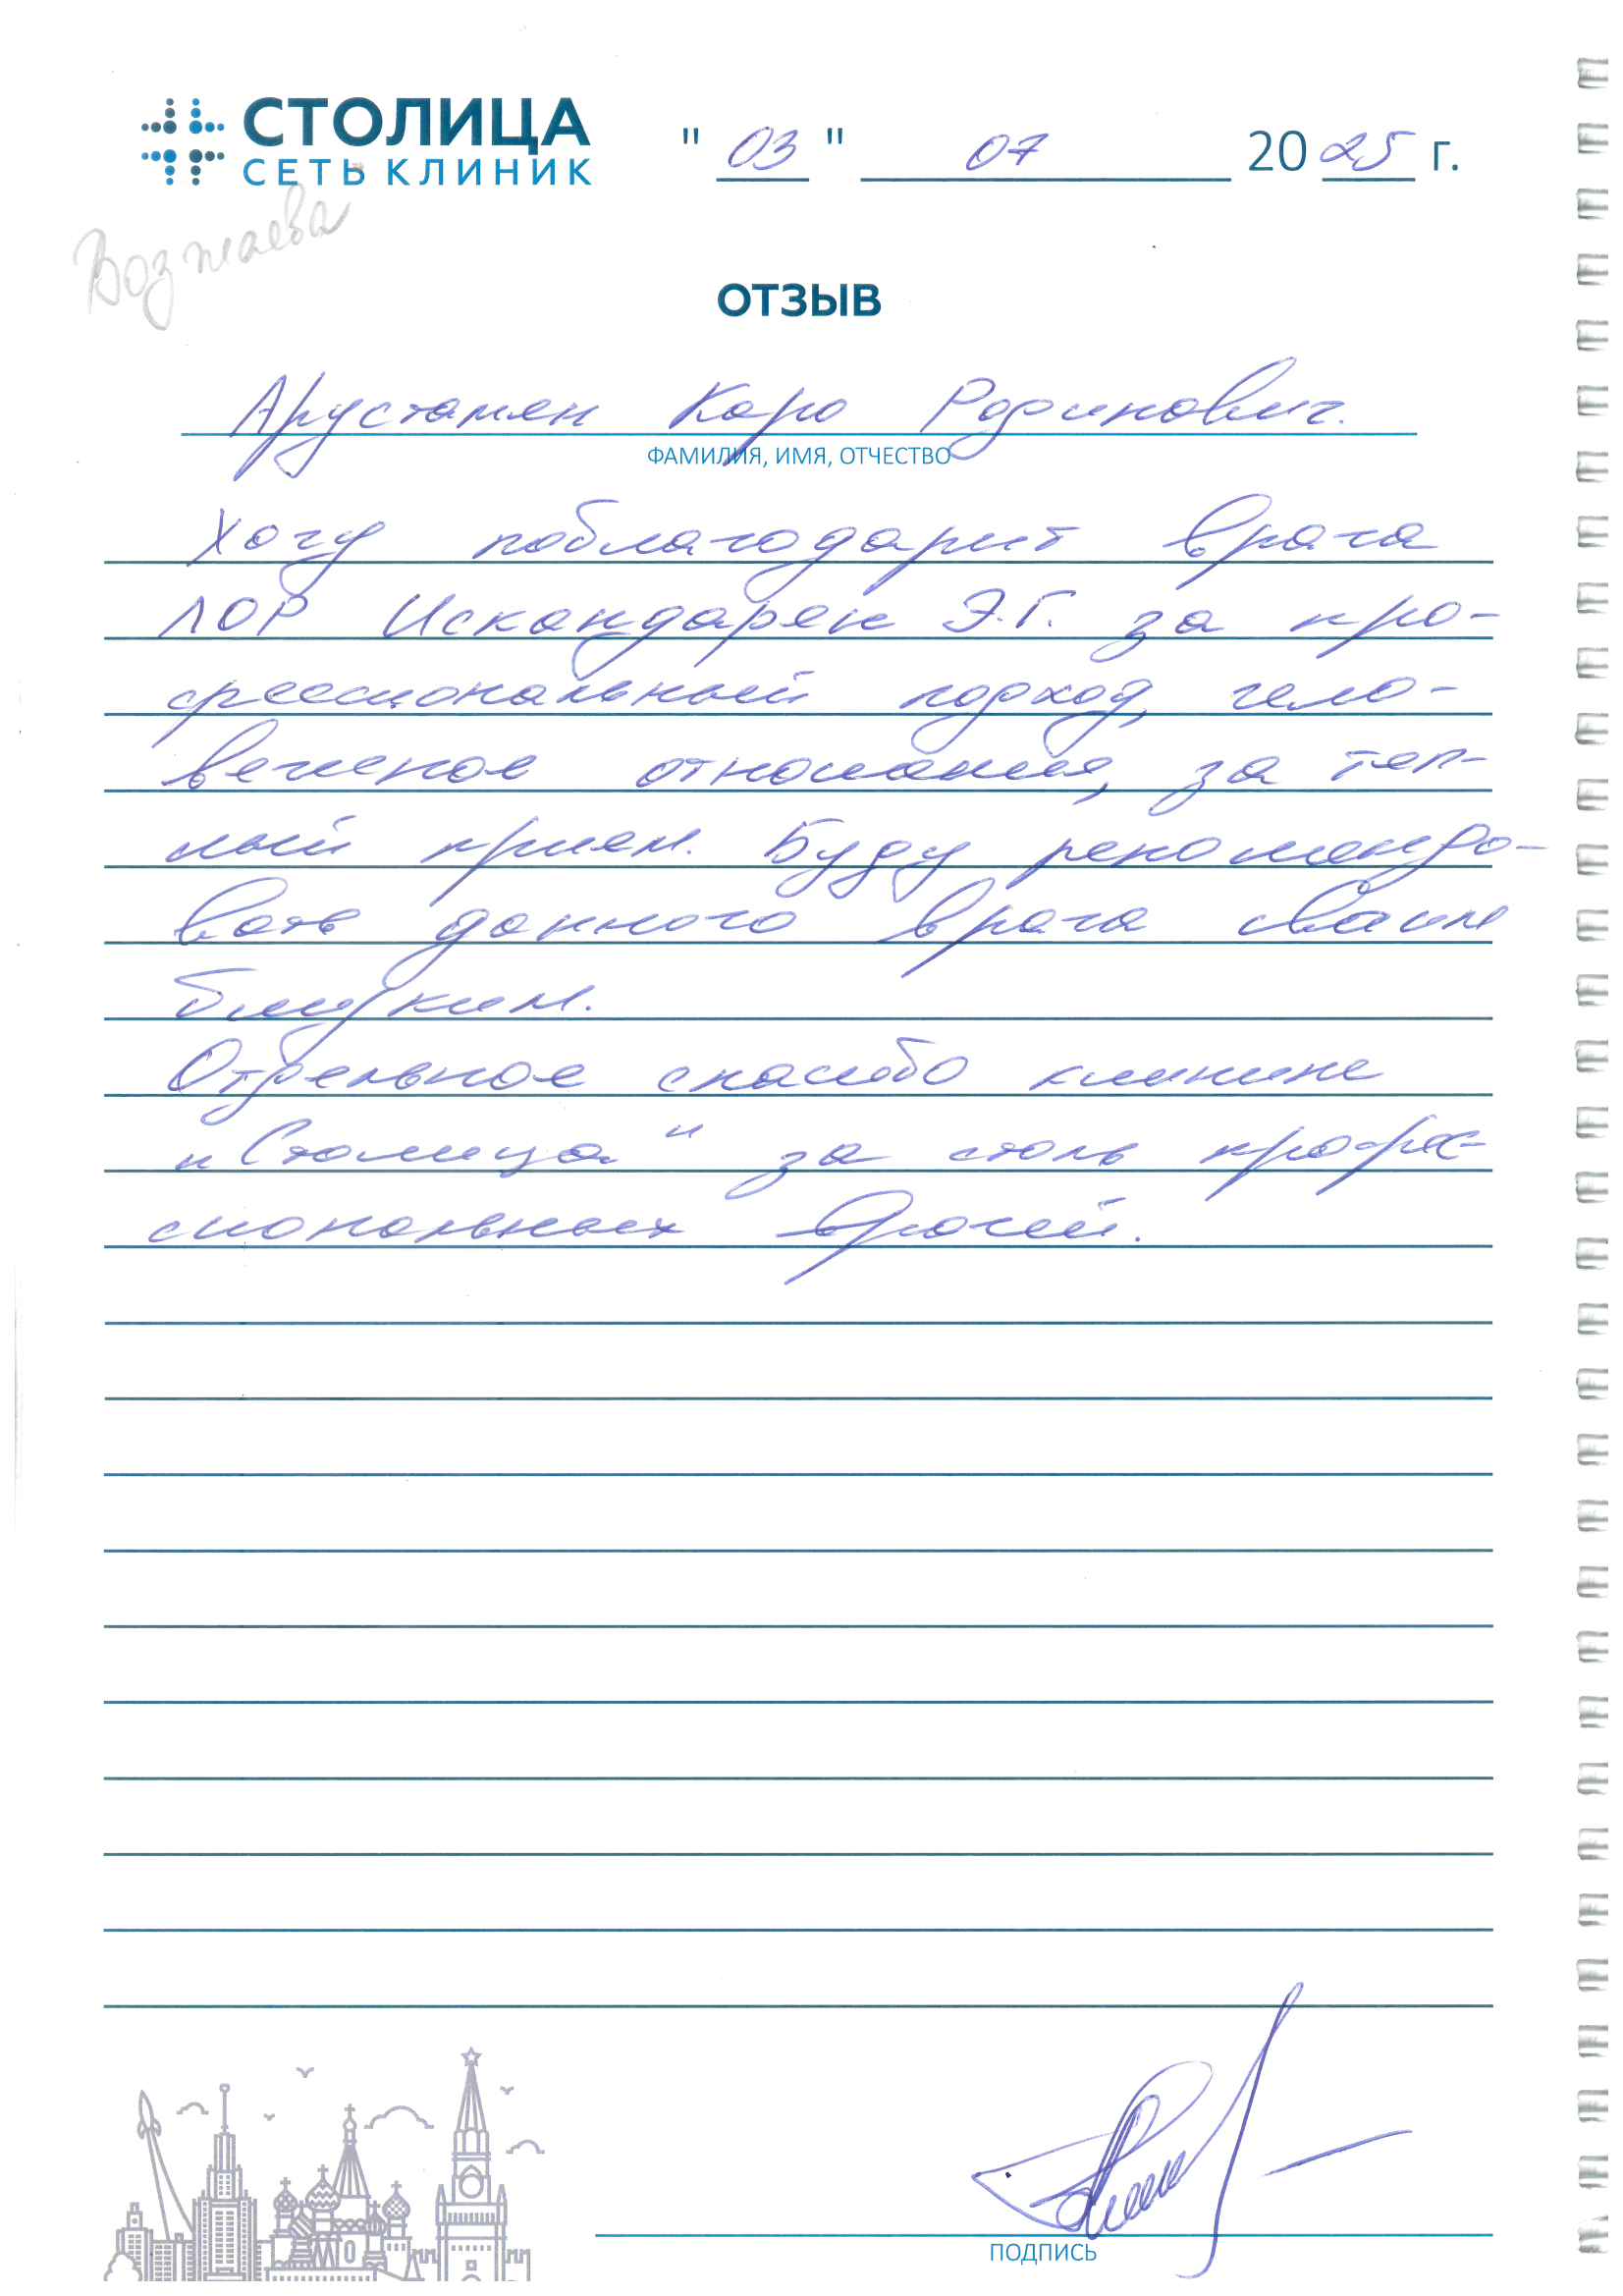 СТОЛИЦА
СЕТЬ КЛИНИК
" 03 " 07 20 25 г.
Возжаева
ОТЗЫВ
Арустамян Каро Родикович.
ФАМИЛИЯ, ИМЯ, ОТЧЕСТВО
Хочу поблагодарит врача
ЛОР Искандарян Э.Г. за про-
фессиональный подход, чело-
веченое отношения, за теп-
лый прием. Буду рекомендо-
вать данного врача своим
близким.
Отдельное спасибо клинике
"Столица" за столь профес-
сиональных врачей.
ПОДПИСЬ